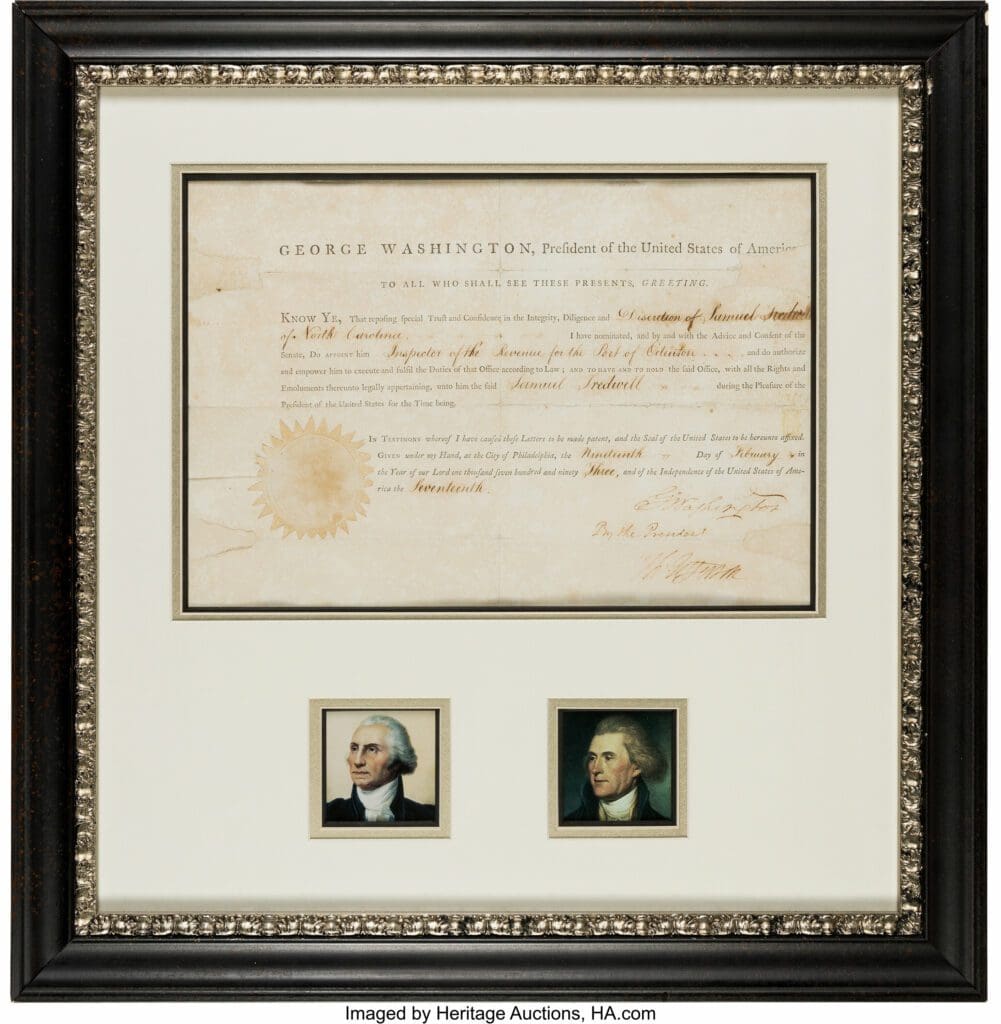 GEORGE WASHINGTON, Preſident of the United States of America
TO ALL WHO SHALL SEE THESE PRESENTS, GREETING.
KNOW YE, That repoſing ſpecial Truſt and Confidence in the Integrity, Diligence and Discretion of Samuel Tredwell
of North Carolina I have nominated, and by and with the Advice and Conſent of the
Senate, DO APPOINT him Inspector of the Revenue for the Port of Edenton . . . . and do authorize
and empower him to execute and fulfil the Duties of that Office according to Law; AND TO HAVE AND TO HOLD the ſaid Office, with all the Rights and
Emoluments thereunto legally appertaining, unto him the ſaid Samuel Tredwell during the Pleaſure of the
Preſident of the United States for the Time being.
IN TESTIMONY whereof I have cauſed theſe Letters to be made patent, and the Seal of the United States to be hereunto affixed.
GIVEN under my Hand, at the City of Philadelphia, the Nineteenth Day of February in
the Year of our Lord one thouſand ſeven hundred and ninety Three, and of the Independence of the United States of Ame-
rica the Seventeenth.
G Washington
By the President
Th Jefferson
Imaged by Heritage Auctions, HA.com